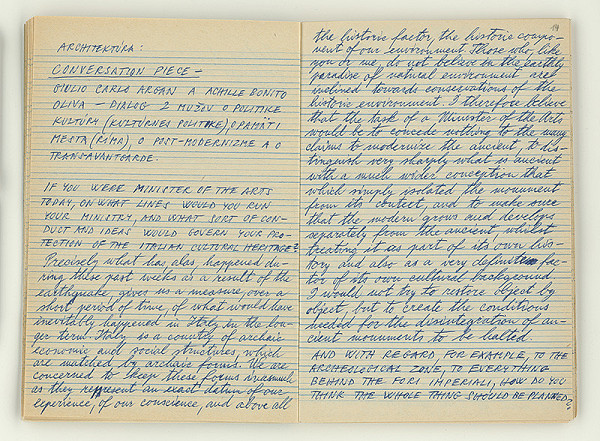 ARCHITEKTÚRA:
CONVERSATION PIECE –
GIULIO CARLO ARGAN A ACHILLE BONITO
OLIVA – DIALOG 2 MUŽOV O POLITIKE
KULTÚRY (KULTÚRNES POLITIKE), O PAMÄTI
MESTA (RÍMA), O POST-MODERNIZME A O
TRANSAVANTGARDE.
IF YOU WERE MINISTER OF THE ARTS
TODAY, ON WHAT LINES WOULD YOU RUN
YOUR MINISTRY, AND WHAT SORT OF CON-
DUCT AND IDEAS WOULD GOVERN YOUR PRO-
TECTION OF THE ITALIAN CULTURAL HERITAGE?
Precisely what has, alas, happened du-
ring these past weeks as a result of the
earthquake, gives us a measure, over a
short period of time, of what would have
inevitably happened in Italy in the lon-
ger term. Italy is a country of archaic
economic and social structures, which
are matched by archaic forms. We are
concerned to keep these forms inasmuch
as they represent an exact datum of our
experience, of our conscience, and above all
14
the historic factor, the historic compo-
nent of our environment. Those who, like
you or me, do not believe in the earthly
paradise of natural environment are
inclined towards conservations of the
historic environment. I therefore believe
that the task of a Minister of the Arts
would be to concede nothing to the many
claims to modernize the ancient, to dis-
tinguish very sharply what is ancient
with a much wider conception that
which simply isolated the monument
from its context, and to make sure
that the modern grows and develops
separately from the ancient, whilst
treating it as part of its own his-
tory and also as a very definite fac-
tor of its own cultural background.
I would not try to restore object by
object, but to create the conditions
needed for the disintegration of an-
cient monuments to be halted.
AND WITH REGARD, FOR EXAMPLE, TO THE
ARCHEOLOGICAL ZONE, TO EVERYTHING
BEHIND THE FORI IMPERIALI, HOW DO YOU
THINK THE WHOLE THING SHOULD BE PLANNED?